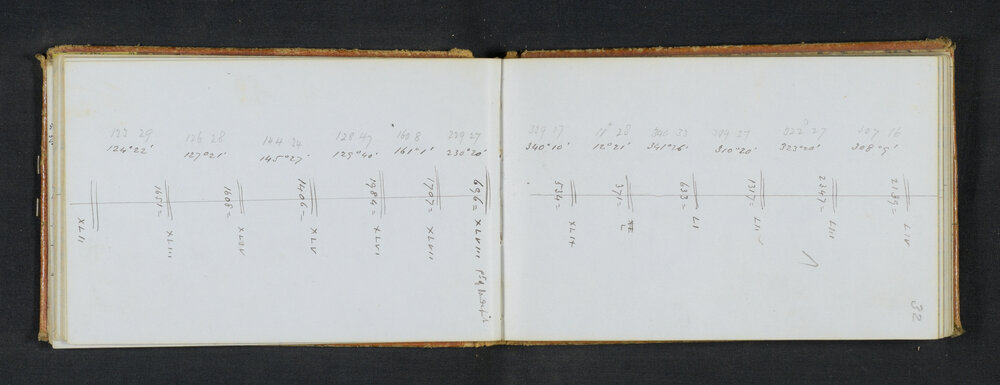 123 29 126 28 144 34 128 47 160 8 229 27
124°22' 127°21' 145°27' 129°40' 161°1' 230°20'
XLII
1651= XLIII
1608= XLIV
1406= XLV
1984= XLVI
1707= XLVII
696= XLVIII
339 17 11° 28 340 33 309 27 322° 27 307 16
340°10' 12°21' 341°26' 310°20' 323°20' 308°9'
534= XLIX
371= L
633= LI
1317= LII
2347= LIII
2189= LIV
32